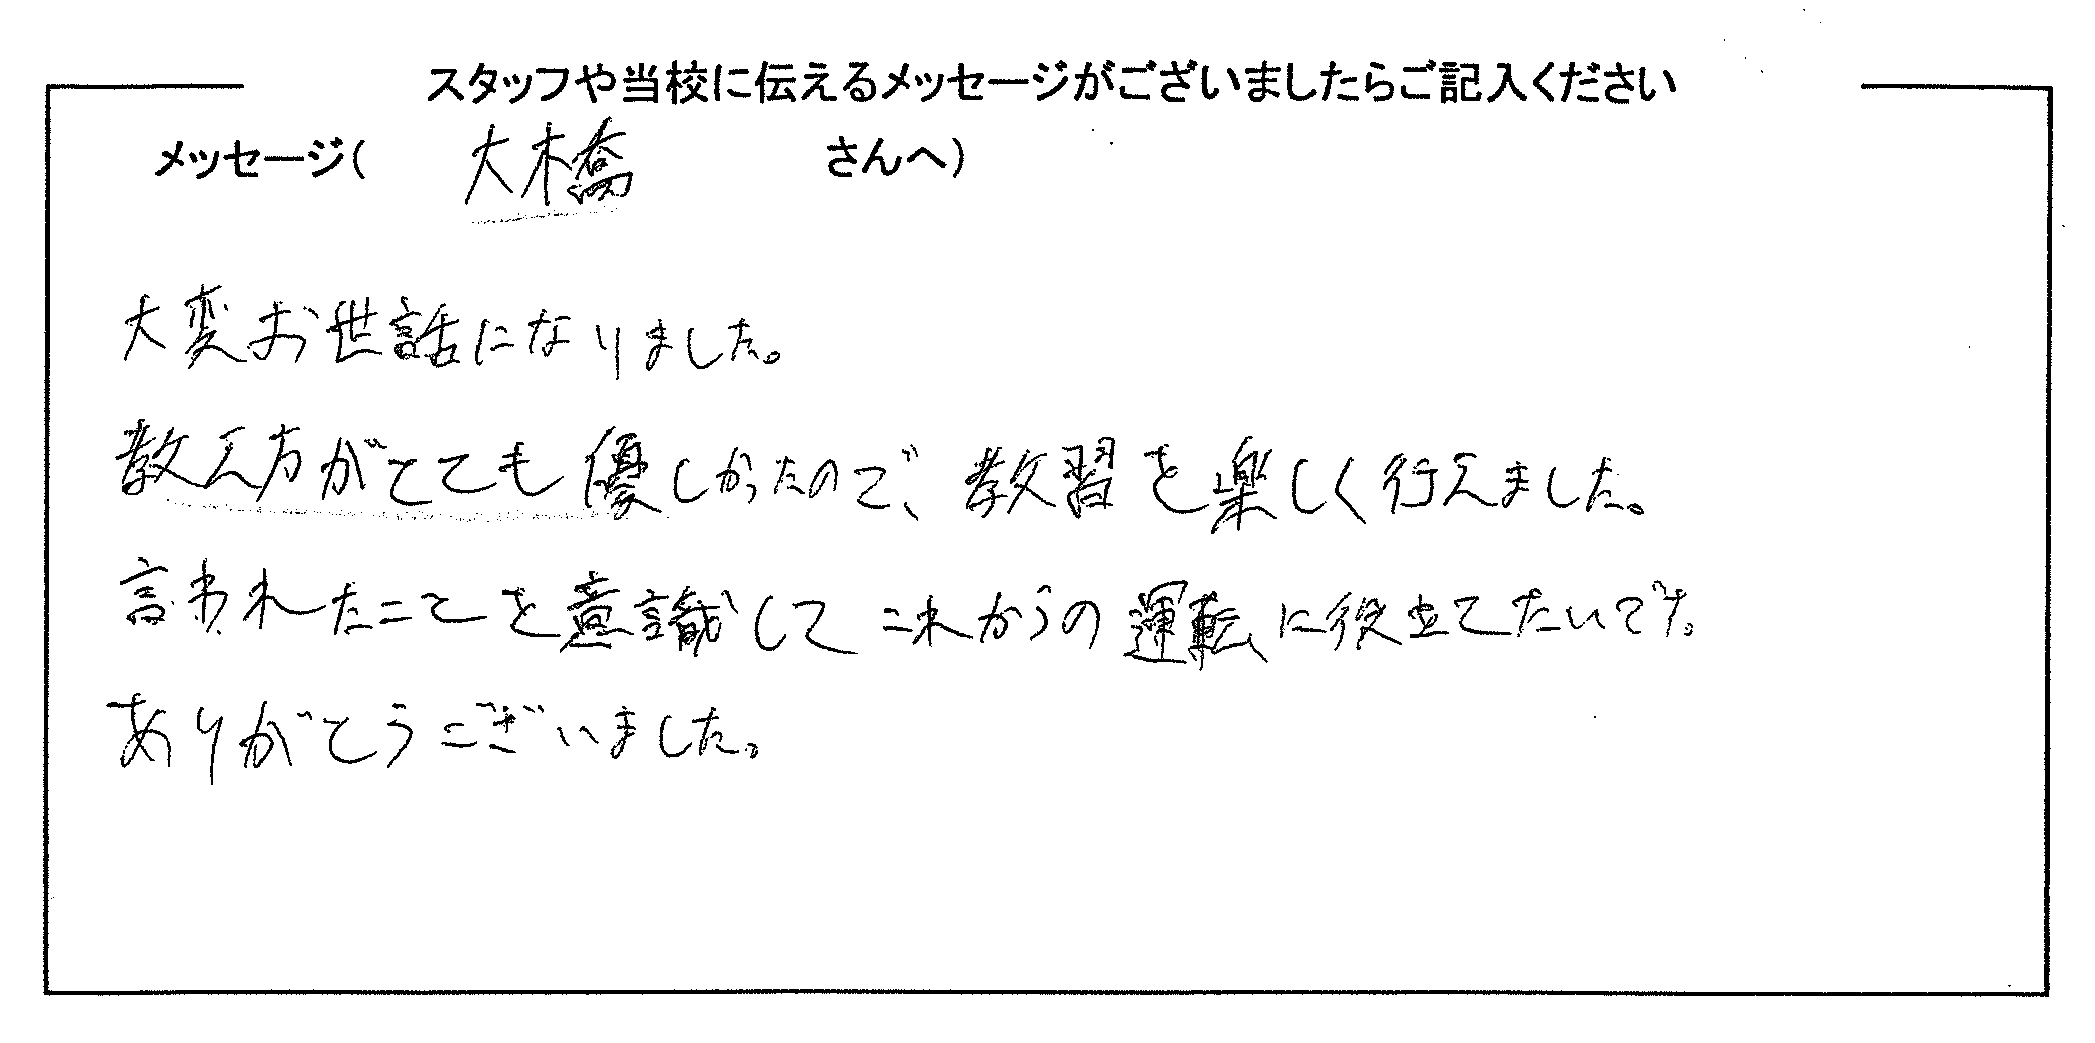 スタッフや当校に伝えるメッセージがございましたらご記入ください
メッセージ( 大橋 さんへ)
大変お世話になりました。
教え方がとても優しかったので、教習を楽しく行えました。
言われたことを意識してこれからの運転に役立てたいです。
ありがとうございました。